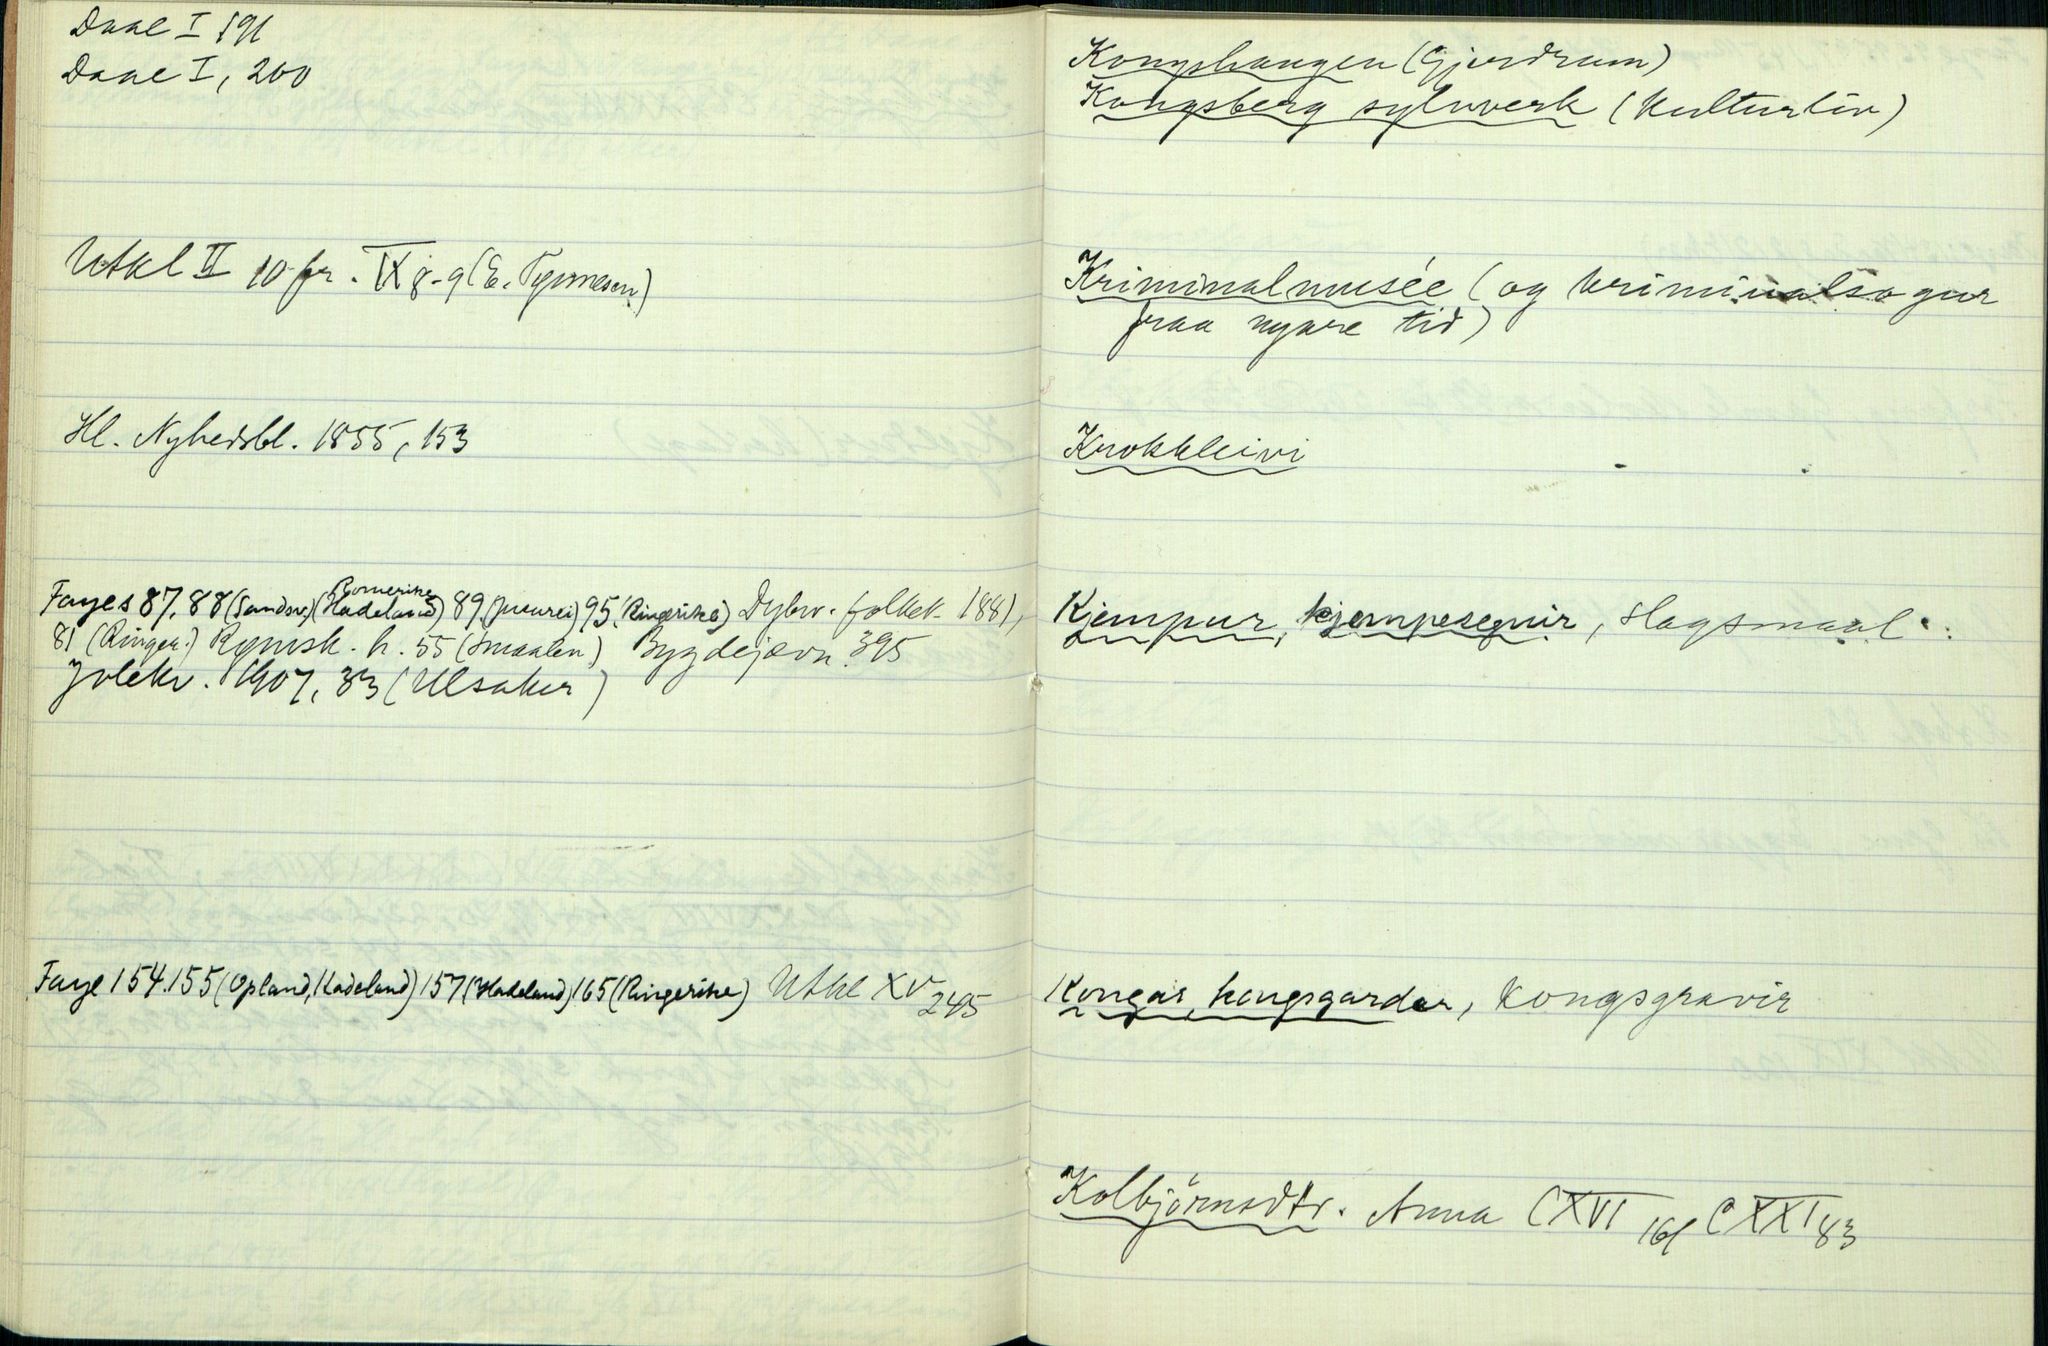 Daae I 191
Daae I, 200
Utkl II 10 fr. IX 8-9 (E. )
Ill. Nyhedsbl. 1855, 153
Romerike
Fayes 87. 88 (Sandsv.) (Hadeland) 89 95 (Ringerike) Dybv. folkek. 1881,
81 (Ringer.) h. 55 (Smaalen) Bygdejævn. 395
Jolekv. 1907, 33 (Ulsaker)
Faye 154. 155 (Opland, Hadeland) 157 (Hadeland) 165 (Ringerike) Utkl XV 245
Kongshaugen (Gjerdrum)
Kongsberg sylvverk (Kulturliv)
Kriminalmusée (og kriminalsogur
fraa nyare tid)
Krokkleivi
Kjempur, kjempesegnir, slagsmaal
Kongar, kongsgardar, kongsgravir
Kolbjörnsdtr. Anna CXVI 161 CXXI 83